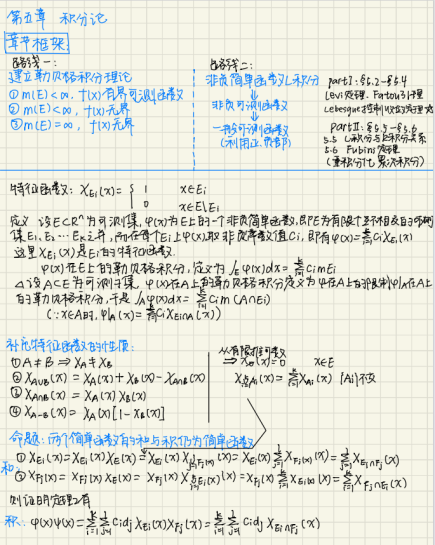 第五章 积分论
章节框架
路线一：
建立勒贝格积分理论
① m(E)<∞, f(x)有界可测函数
② m(E)<∞, f(x)无界
③ m(E)=∞, f(x)无界
路线二：
非负简单函数L积分
↓
非负可测函数
↓
一般可测函数
(利用正负部)
part I: §5.2~§5.4
Levi定理、Fatou引理
Lebesgue控制收敛定理
part II: §5.5~§5.6
5.5 L积分与R积分关系
5.6 Fubini定理
(重积分化累次积分)
特征函数: χEi(x) = { 1 x∈Ei
0 x∈E\Ei
定义 设E⊂Rⁿ为可测集, φ(x)为E上的一个非负简单函数, 即E为有限个互不相交的可测
集E1, E2, … Ek之并, 而在每个Ei上φ(x)取非负常数值Ci, 即有φ(x)=∑_{i=1}^{k} Ci χEi(x)
这里χEi(x)是Ei的特征函数.
φ(x)在E上的勒贝格积分, 定义为∫_E φ(x)dx = ∑_{i=1}^{k} Ci mEi
△ 设A⊂E为可测子集, φ(x)在A上的勒贝格积分定义为φ在A上的限制φ|A在A上
的勒贝格积分, 于是∫_A φ(x)dx = ∑_{i=1}^{k} Ci m(A∩Ei)
(∵ x∈A时, φ|A(x) = ∑_{i=1}^{k} Ci χEi∩A(x))
补充特征函数的性质:
① A≠B ⇒ χA≠χB
② χA∪B(x) = χA(x) + χB(x) - χA∩B(x)
③ χA∩B(x) = χA(x) χB(x)
④ χA-B(x) = χA(x)[1-χB(x)]
⇒ χφ(x)=0 x∈E
χ∪Ai(x) = ∑χAi(x) {Ai}不交
命题: 两个简单函数的和与积仍为简单函数
和: ① χEi(x) = χEi(x)χE(x) = χEi(x) χ∪Fj(x) = χEi(x) ∑χFj(x) = ∑χEi∩Fj(x)
② χFj(x) = χFj(x) χE(x) = χFj(x) χ∪Ei(x) = χFj(x) ∑χEi(x) = ∑χFj∩Ei(x)
则证明定理2有
积: φ(x)ψ(x) = ∑_{i=1}^{k} ∑ Ci dj χEi(x) χFj(x) = ∑_{i=1}^{k} ∑ Ci dj χEi∩Fj(x)